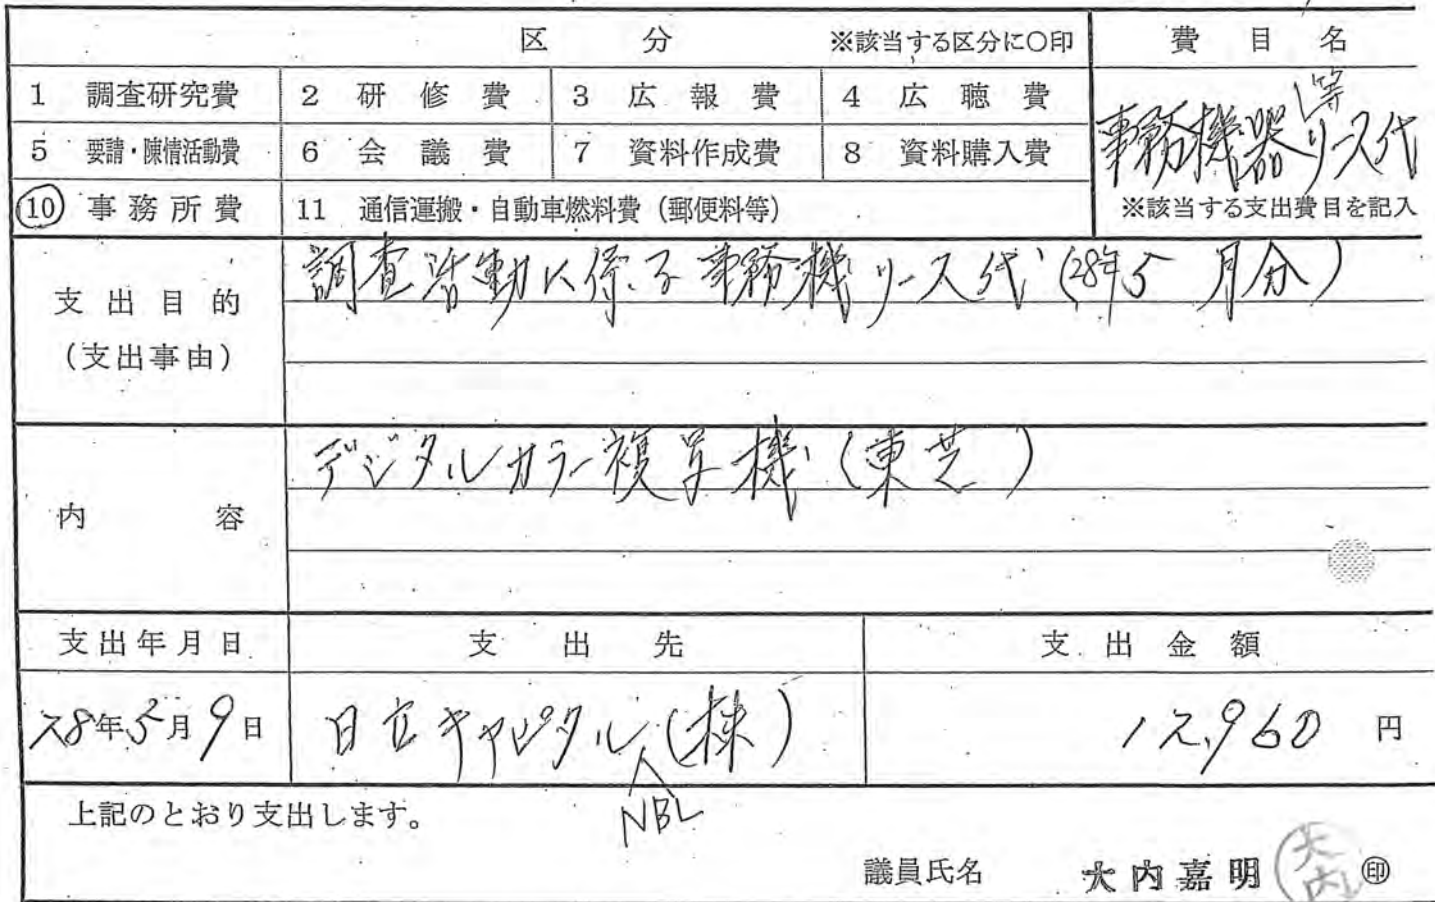 区分 ※該当する区分に○印 費目名
1 調査研究費 2 研修費 3 広報費 4 広聴費
5 要請・陳情活動費 6 会議費 7 資料作成費 8 資料購入費
事務機器等リース代
10 事務所費 11 通信運搬・自動車燃料費(郵便料等) ※該当する支出費目を記入
支出目的
(支出事由)
調査活動に係る事務機リース代(28年5月分)
内容
デジタルカラー複写機(東芝)
支出年月日 支出先 支出金額
28年5月9日 日立キャピタルNBL(株) 12,960円
上記のとおり支出します。
議員氏名 大内嘉明 大内 ㊞